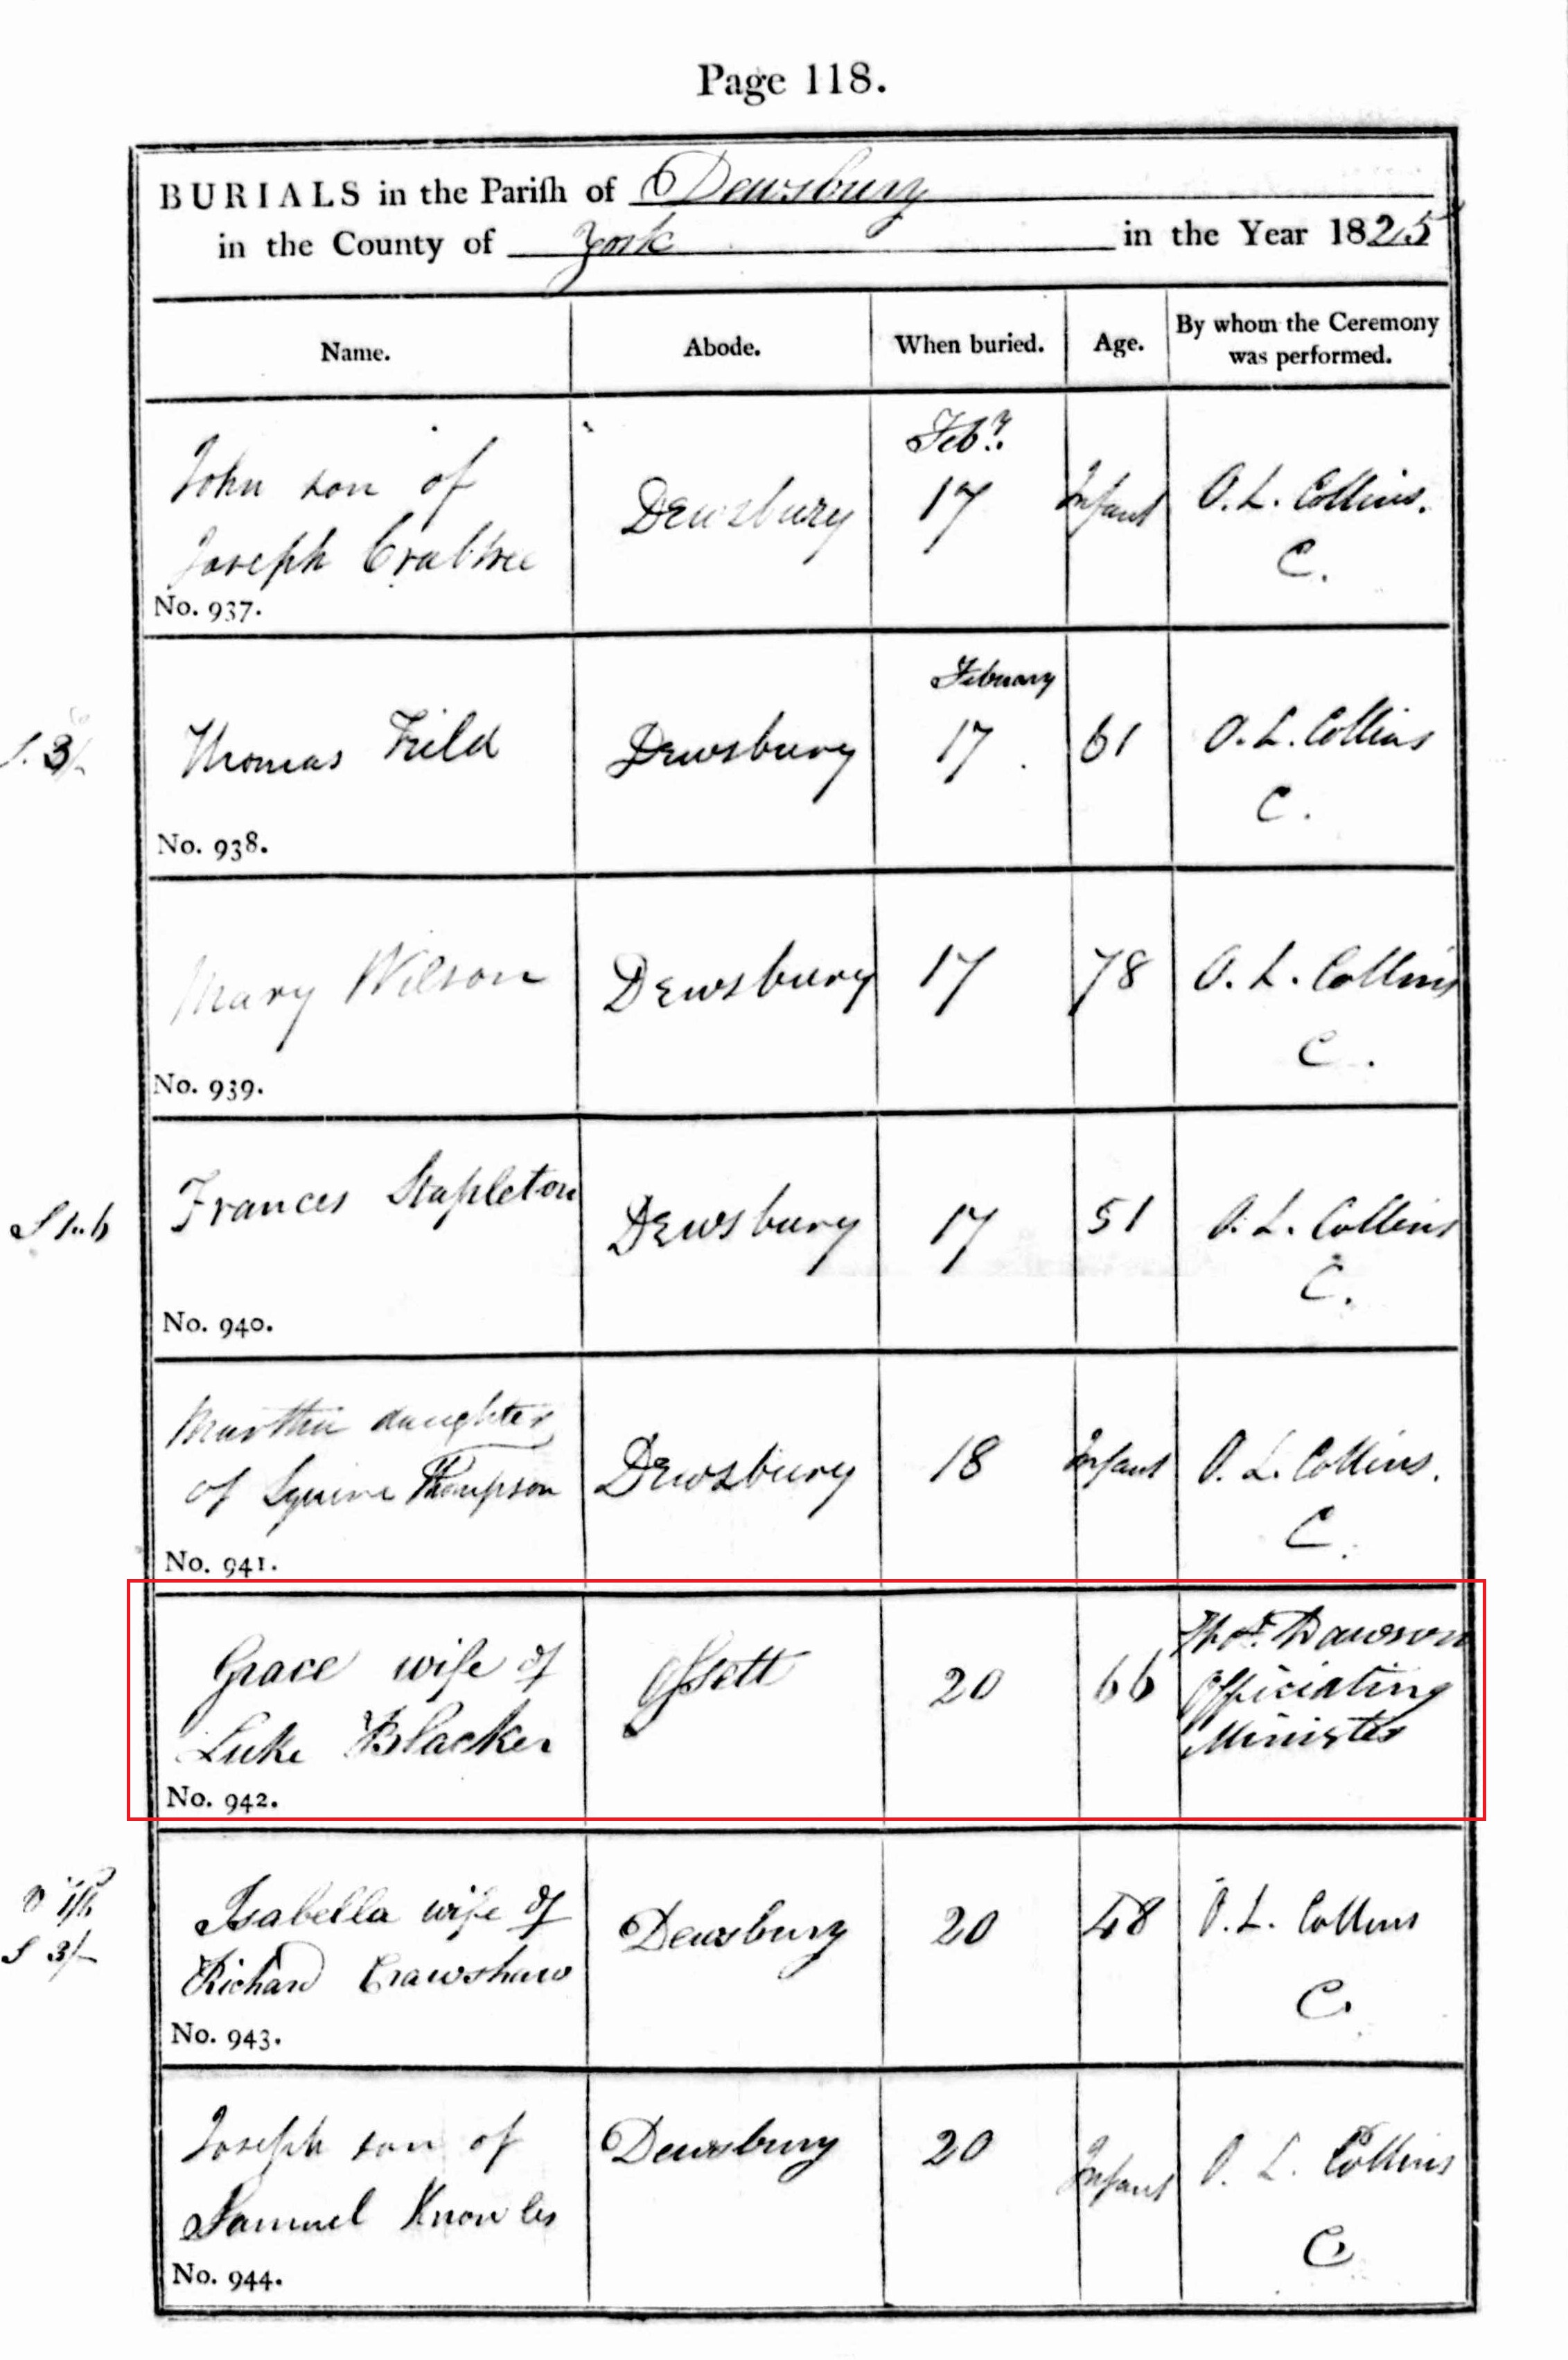 Page 118.
BURIALS in the Pariſh of Dewsbury
in the County of York in the Year 1825
Name. Abode. When buried. Age. By whom the Ceremony was performed.
Febr.
John son of Dewsbury 17 Infant O. L. Collins.
Joseph Crabtree C.
No. 937.
February
S. 3/- Thomas Feild Dewsbury 17. 61 O. L. Collins
C.
No. 938.
Mary Wilson Dewsbury 17 78 O. L. Collins
C.
No. 939.
Frances Stapleton Dewsbury 17 51 O. L. Collins
C.
No. 940.
Martha daughter
of Squire Thompson Dewsbury 18 Infant O. L. Collins.
C.
No. 941.
Thos. Dawson
Grace wife of Ossett 20 66 Officiating
Luke Blacker Minister
No. 942.
Isabella wife of Dewsbury 20 48 O. L. Collins
S 3/- Richard Crawshaw C.
No. 943.
Joseph son of Dewsbury 20 Infant O. L. Collins
Samuel Knowles C
No. 944.